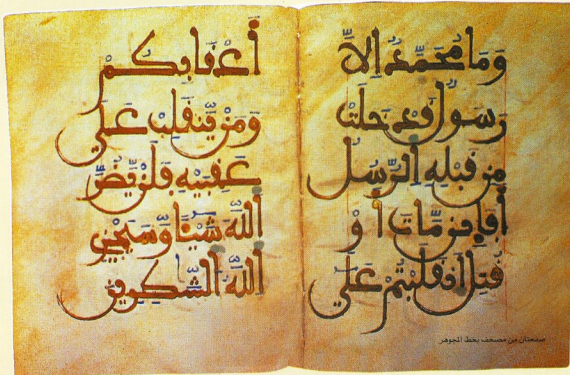 وَمَا مُحَمَّدٌ اِلَّا
رَسُولٌ قَدْ خَلَتْ
مِن قَبْلِهِ اِ۬لرُّسُلُ
أَفَإِيْن مَّاتَ أَوْ
قُتِلَ اَ۪نقَلَبْتُمْ عَلَىٰ
أَعْقَابِكُمْ
وَمَنْ يَّنقَلِبْ عَلَىٰ
عَقِبَيْهِ فَلَنْ يَّضُرَّ
اَ۬للَّهَ شَيْـٔاً وَسَيَجْزِے
اِ۬للَّهُ اُ۬لشَّٰكِرِينَ
صفحتان من مصحف بخط المجوهر